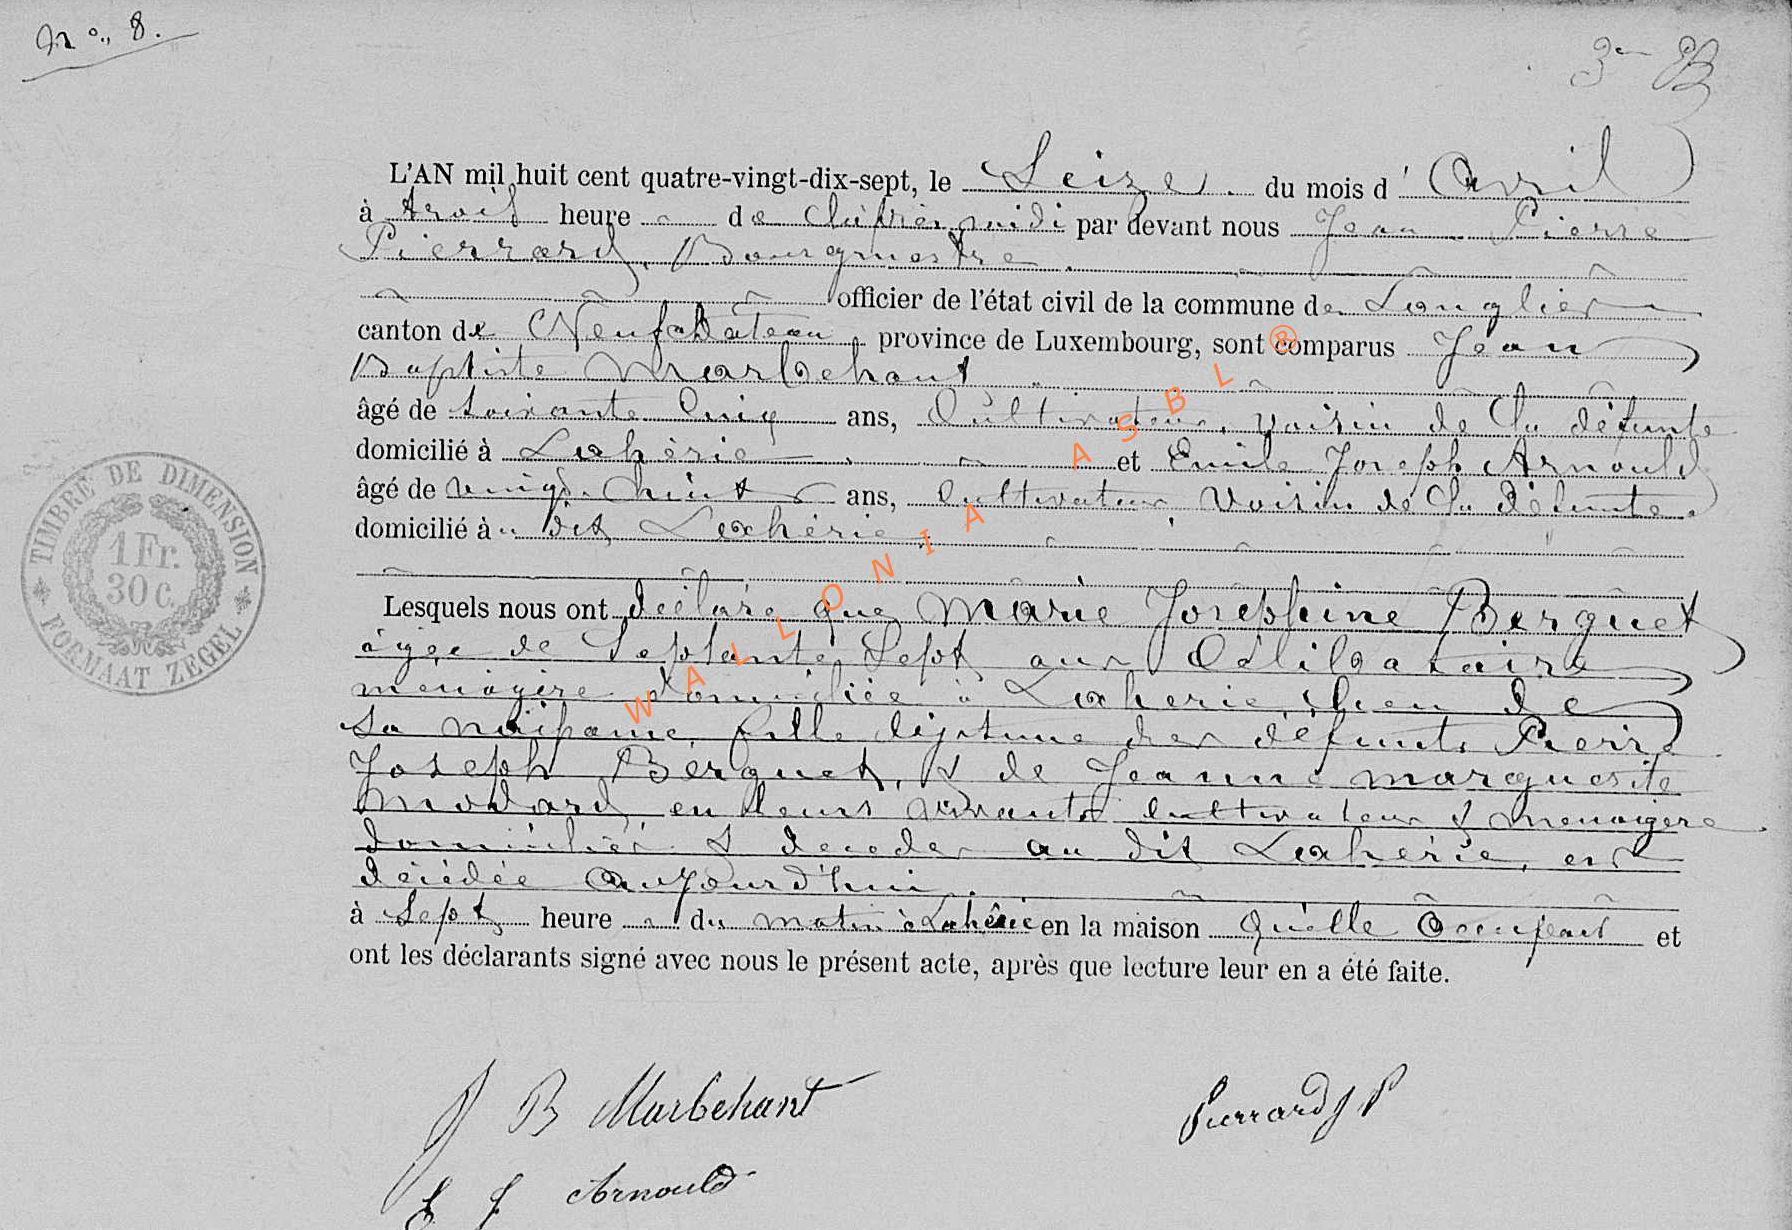 No. 8.
3e B
L'AN mil huit cent quatre-vingt-dix-sept, le Seize du mois d'Avril
à trois heures de l'après midi par devant nous Jean Pierre
Pierrard, Bourgmestre
officier de l'état civil de la commune de Longlier
canton de Neufchâteau province de Luxembourg, sont comparus Jean
Baptiste Marbehant
âgé de soixante cinq ans, Cultivateur, voisin de la défunte
domicilié à Lahérie et Emile Joseph Arnould
âgé de vingt huit ans, Cultivateur, Voisin de la défunte
domicilié au dit Lahérie.
Lesquels nous ont déclaré que Marie Josephine Berquet
âgée de Septante Sept ans Célibataire
menagère domiciliée à Laherie, lieu de
sa naissance, fille légitime des défunts Pierre
Joseph Berquet, & de Jeanne marguerite
Modard en leurs vivants Cultivateur & menagère
domiciliés & decedes au dit Lahérie, est
décédée aujourd'hui.
à Sept heures du matin à Lahérie en la maison qu'elle Occupait et
ont les déclarants signé avec nous le présent acte, après que lecture leur en a été faite.
TIMBRE DE DIMENSION
1 Fr.
30 c.
FORMAAT ZEGEL
WALLONIA ASBL ®
J B Marbehant
Pierrard J P
E J Arnould